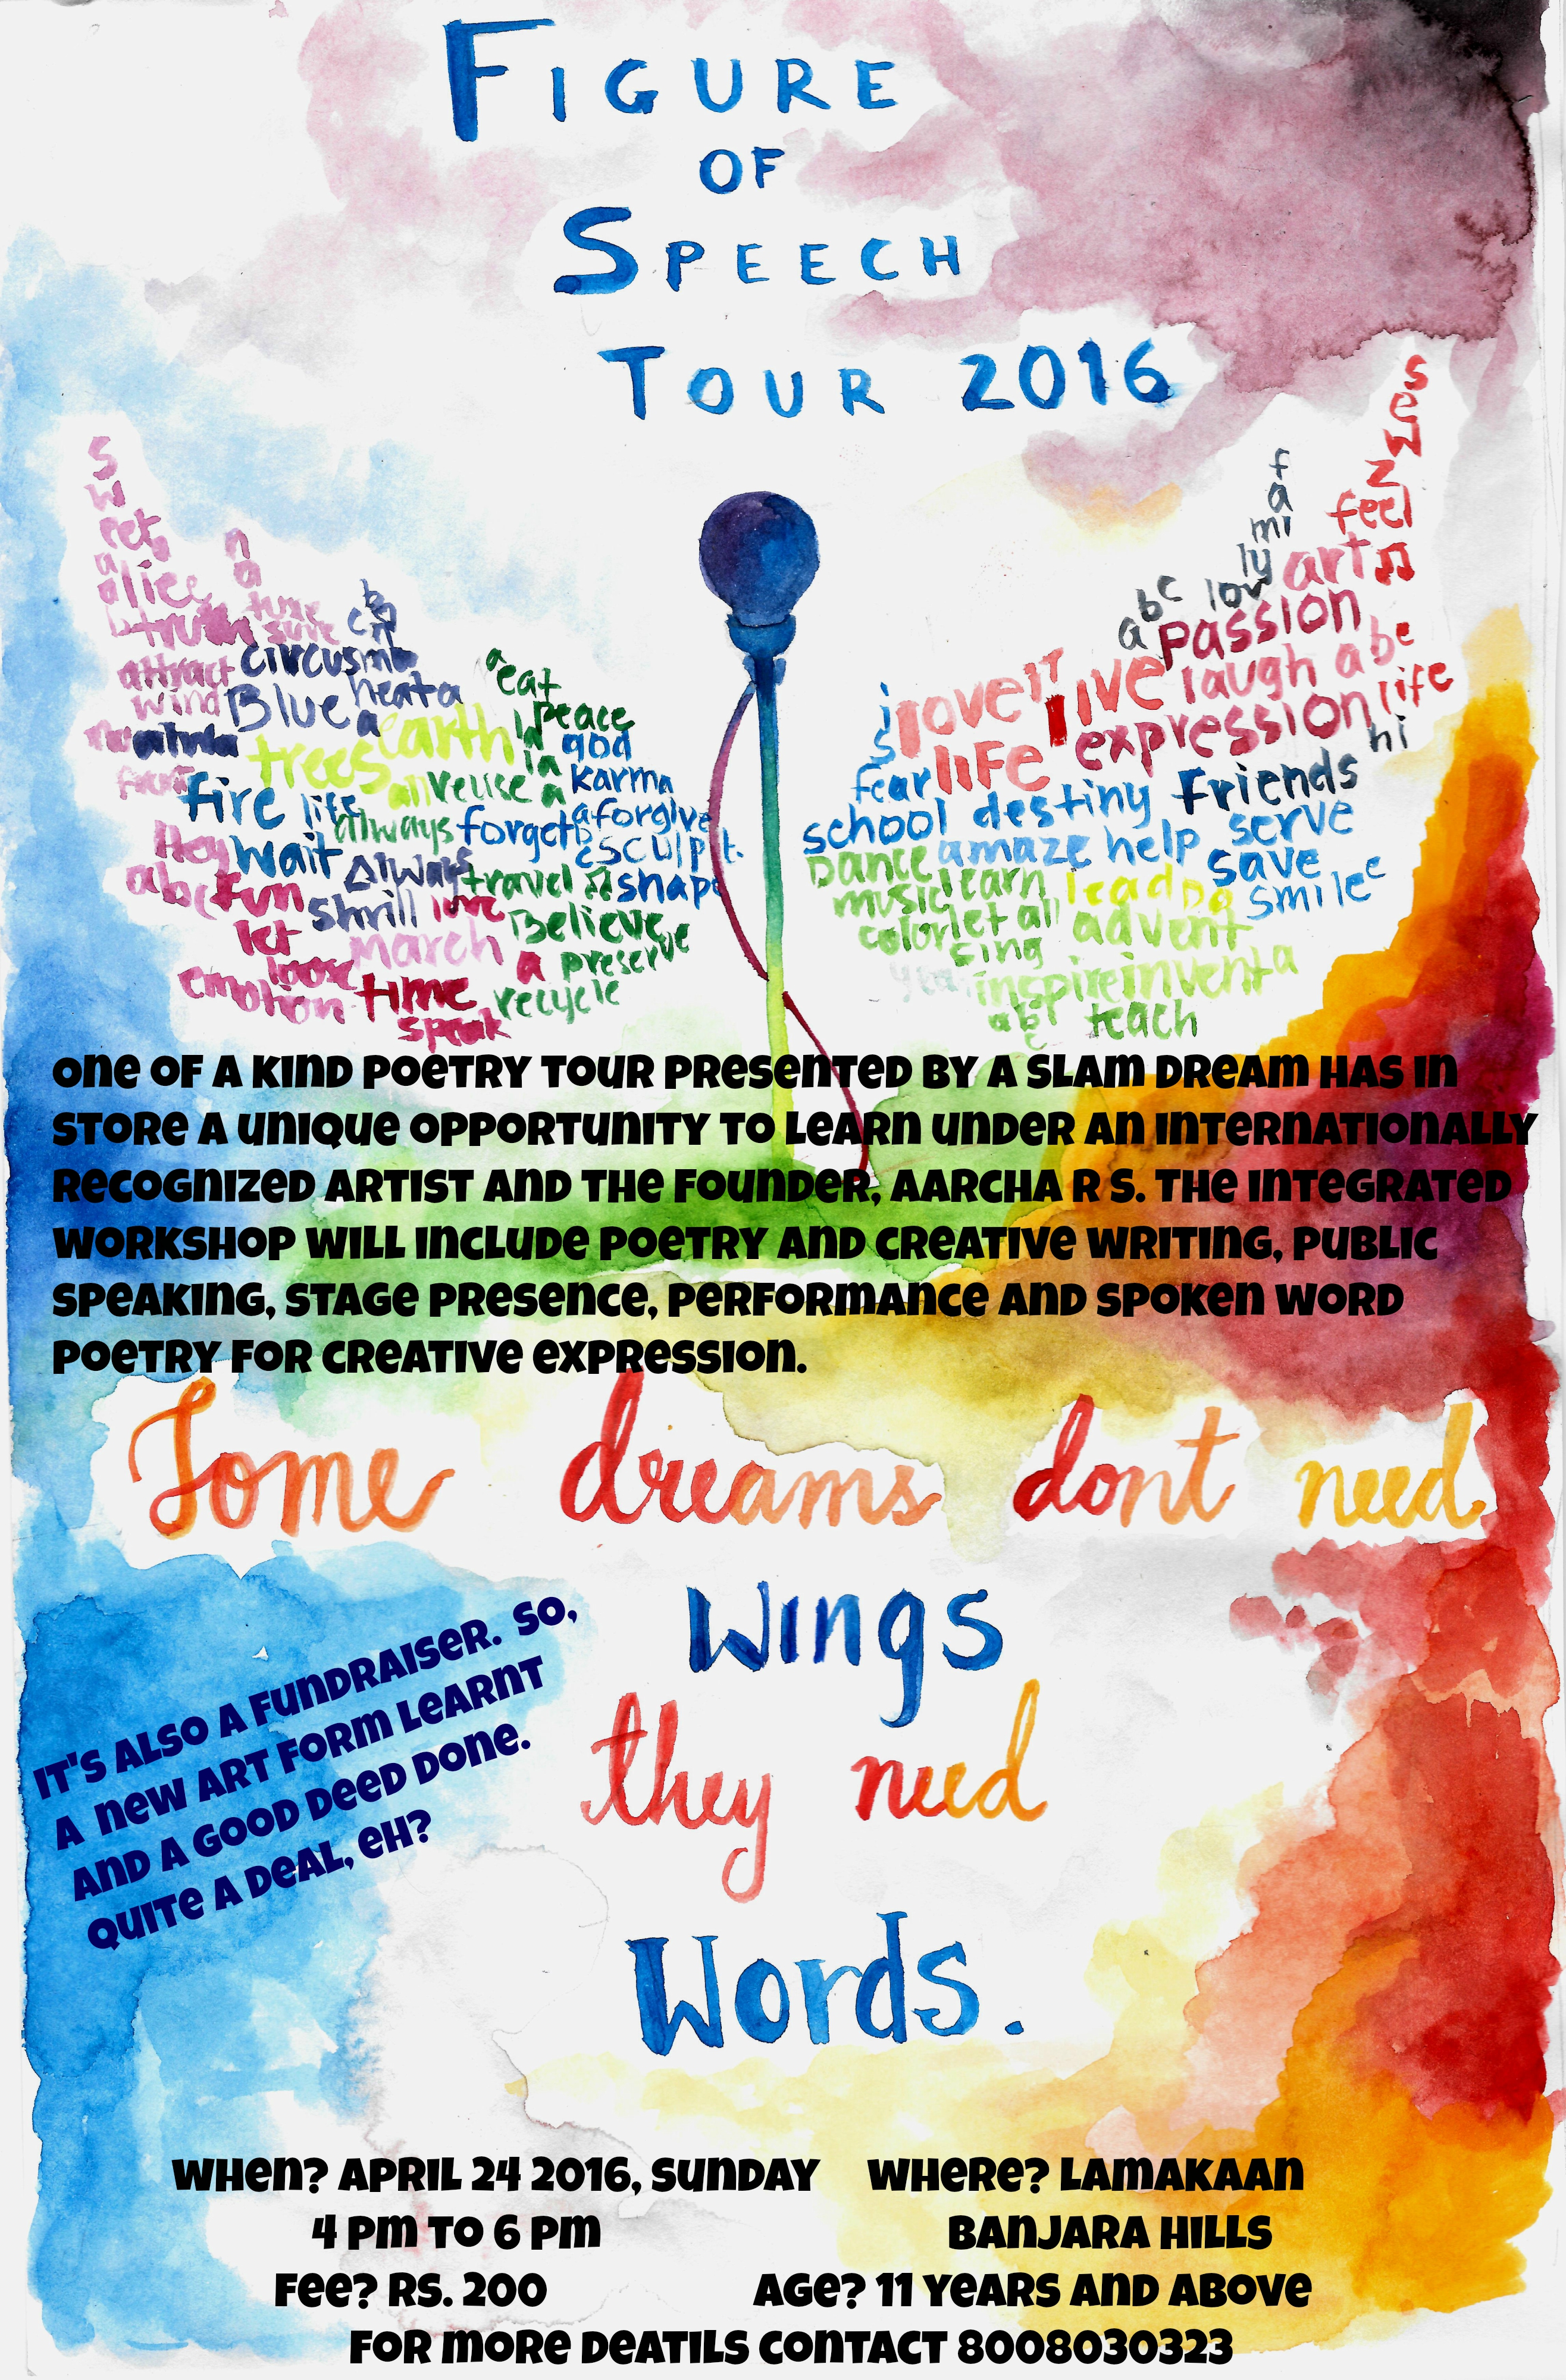 FIGURE
OF
SPEECH
TOUR 2016
s
w
eet
a
alice
truth
attract
wind
n
a
ture
sure
circus
Blue
heat a
a
earth
trees
all
reuse
a
eat
peace
la
god
la
karma
fire
life
always
forget
a forgive
sculpt
Hey
wait
Always
travel
shape
abc
fun
shrill
love
Believe
let
March
a
preserve
loose
emotion
time
recycle
speak
feel
f
a
mi
ly
art
abc
low
passion
is
love
live
laugh
a
be
life
expression
life
hi
fear
Friends
school
destiny
serve
Dance
amaze
help
save
music
learn
lead
smile
color
let all
advent
sing
inspire
invent a
abc
teach
ONE OF A KIND POETRY TOUR PRESENTED BY A SLAM DREAM HAS IN
STORE A UNIQUE OPPORTUNITY TO LEARN UNDER AN INTERNATIONALLY
RECOGNIZED ARTIST AND THE FOUNDER, AARCHA R S. THE INTEGRATED
WORKSHOP WILL INCLUDE POETRY AND CREATIVE WRITING, PUBLIC
SPEAKING, STAGE PRESENCE, PERFORMANCE AND SPOKEN WORD
POETRY FOR CREATIVE EXPRESSION.
Some dreams dont need
wings
they need
Words.
IT'S ALSO A FUNDRAISER. SO,
A NEW ART FORM LEARNT
AND A GOOD DEED DONE.
QUITE A DEAL, EH?
WHEN? APRIL 24 2016, SUNDAY WHERE? LAMAKAAN
4 PM TO 6 PM BANJARA HILLS
FEE? RS. 200 AGE? 11 YEARS AND ABOVE
FOR MORE DEATILS CONTACT 8008030323